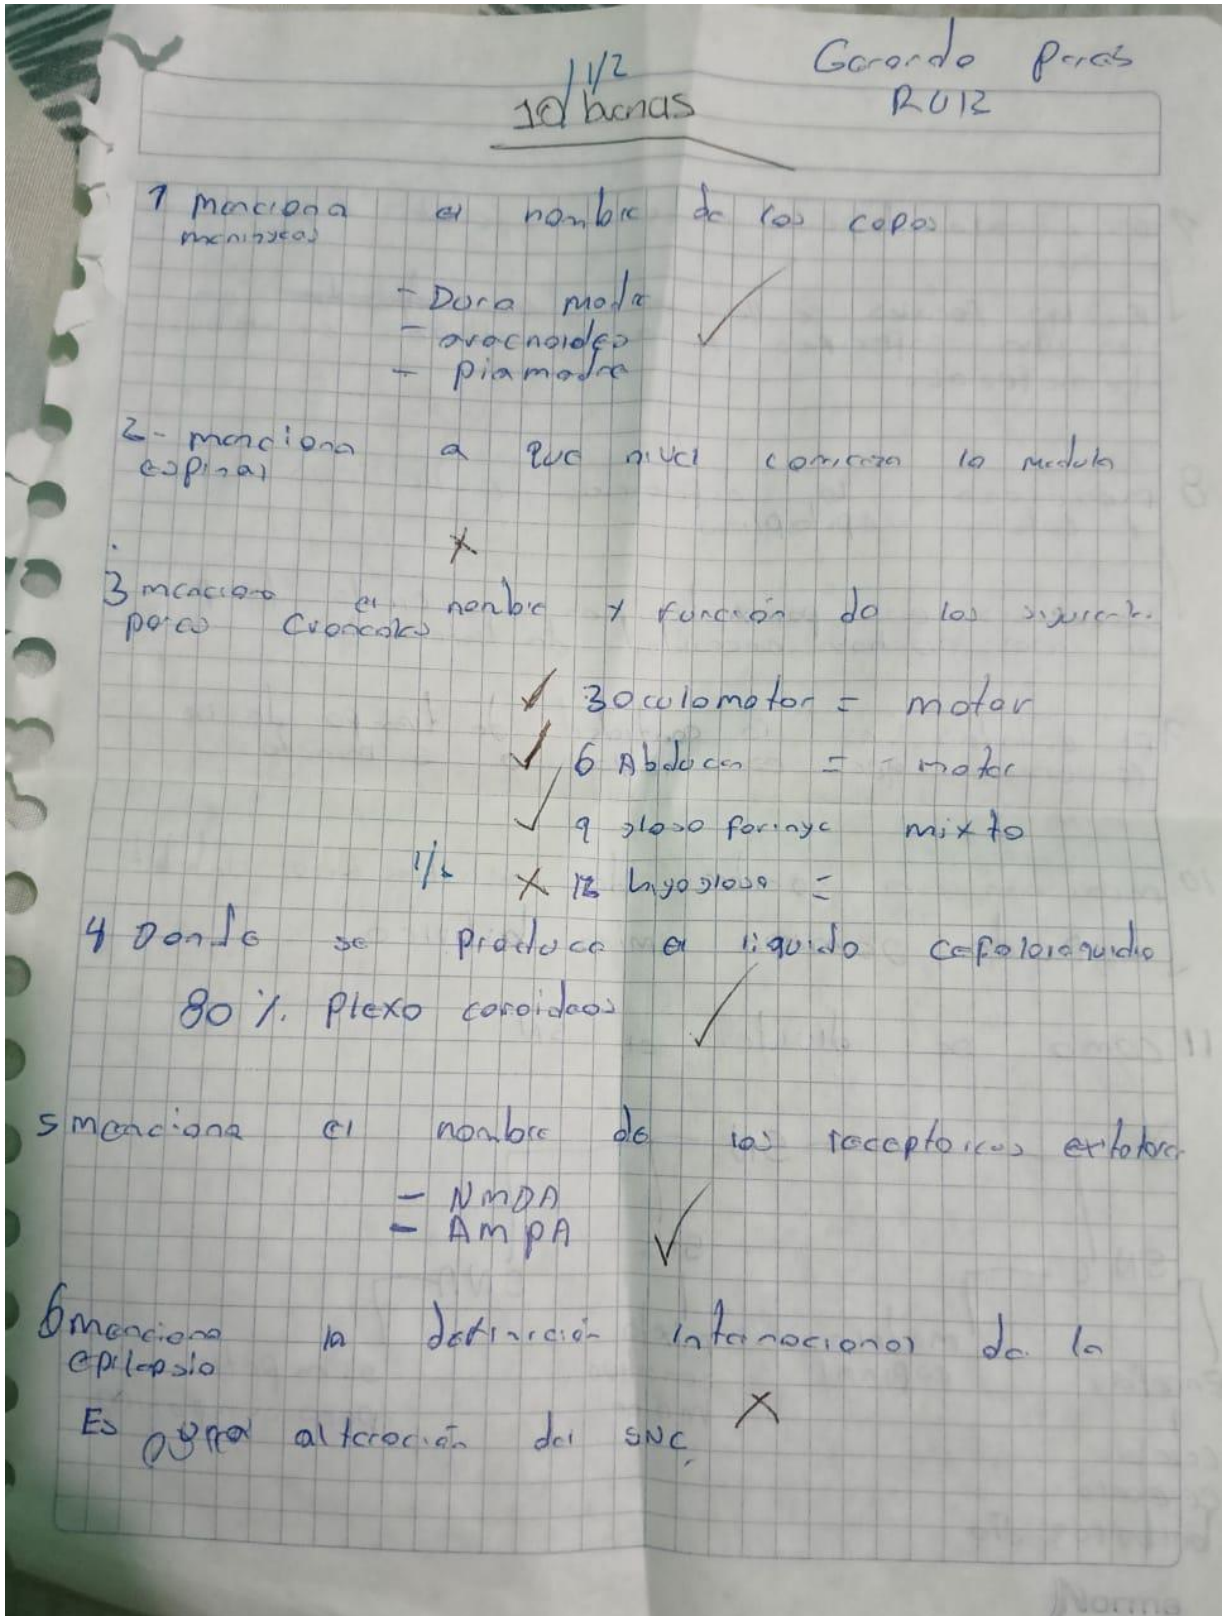 Gerardo
Ruiz
1/2
10 buenas
1 menciona el nombre de las capas
meningeas
- Dura madre
- aracnoides
- piamadre
2- menciona a que nivel comienza la medula
espinal
3 menciona el nombre y función de los siguientes
pares craneales
3 oculomotor = motor
6 Abducen = - motor
9 gloso faringe mixto
1/2
12 hipogloso =
4 Donde se produce el liquido cefaloraquidio
80 %. Plexo coroideos
5 menciona el nombre de los receptores
- NMDA
- AMPA
6 menciona la definición internacional de la
epilepsia
Es alteración del SNC
Norma